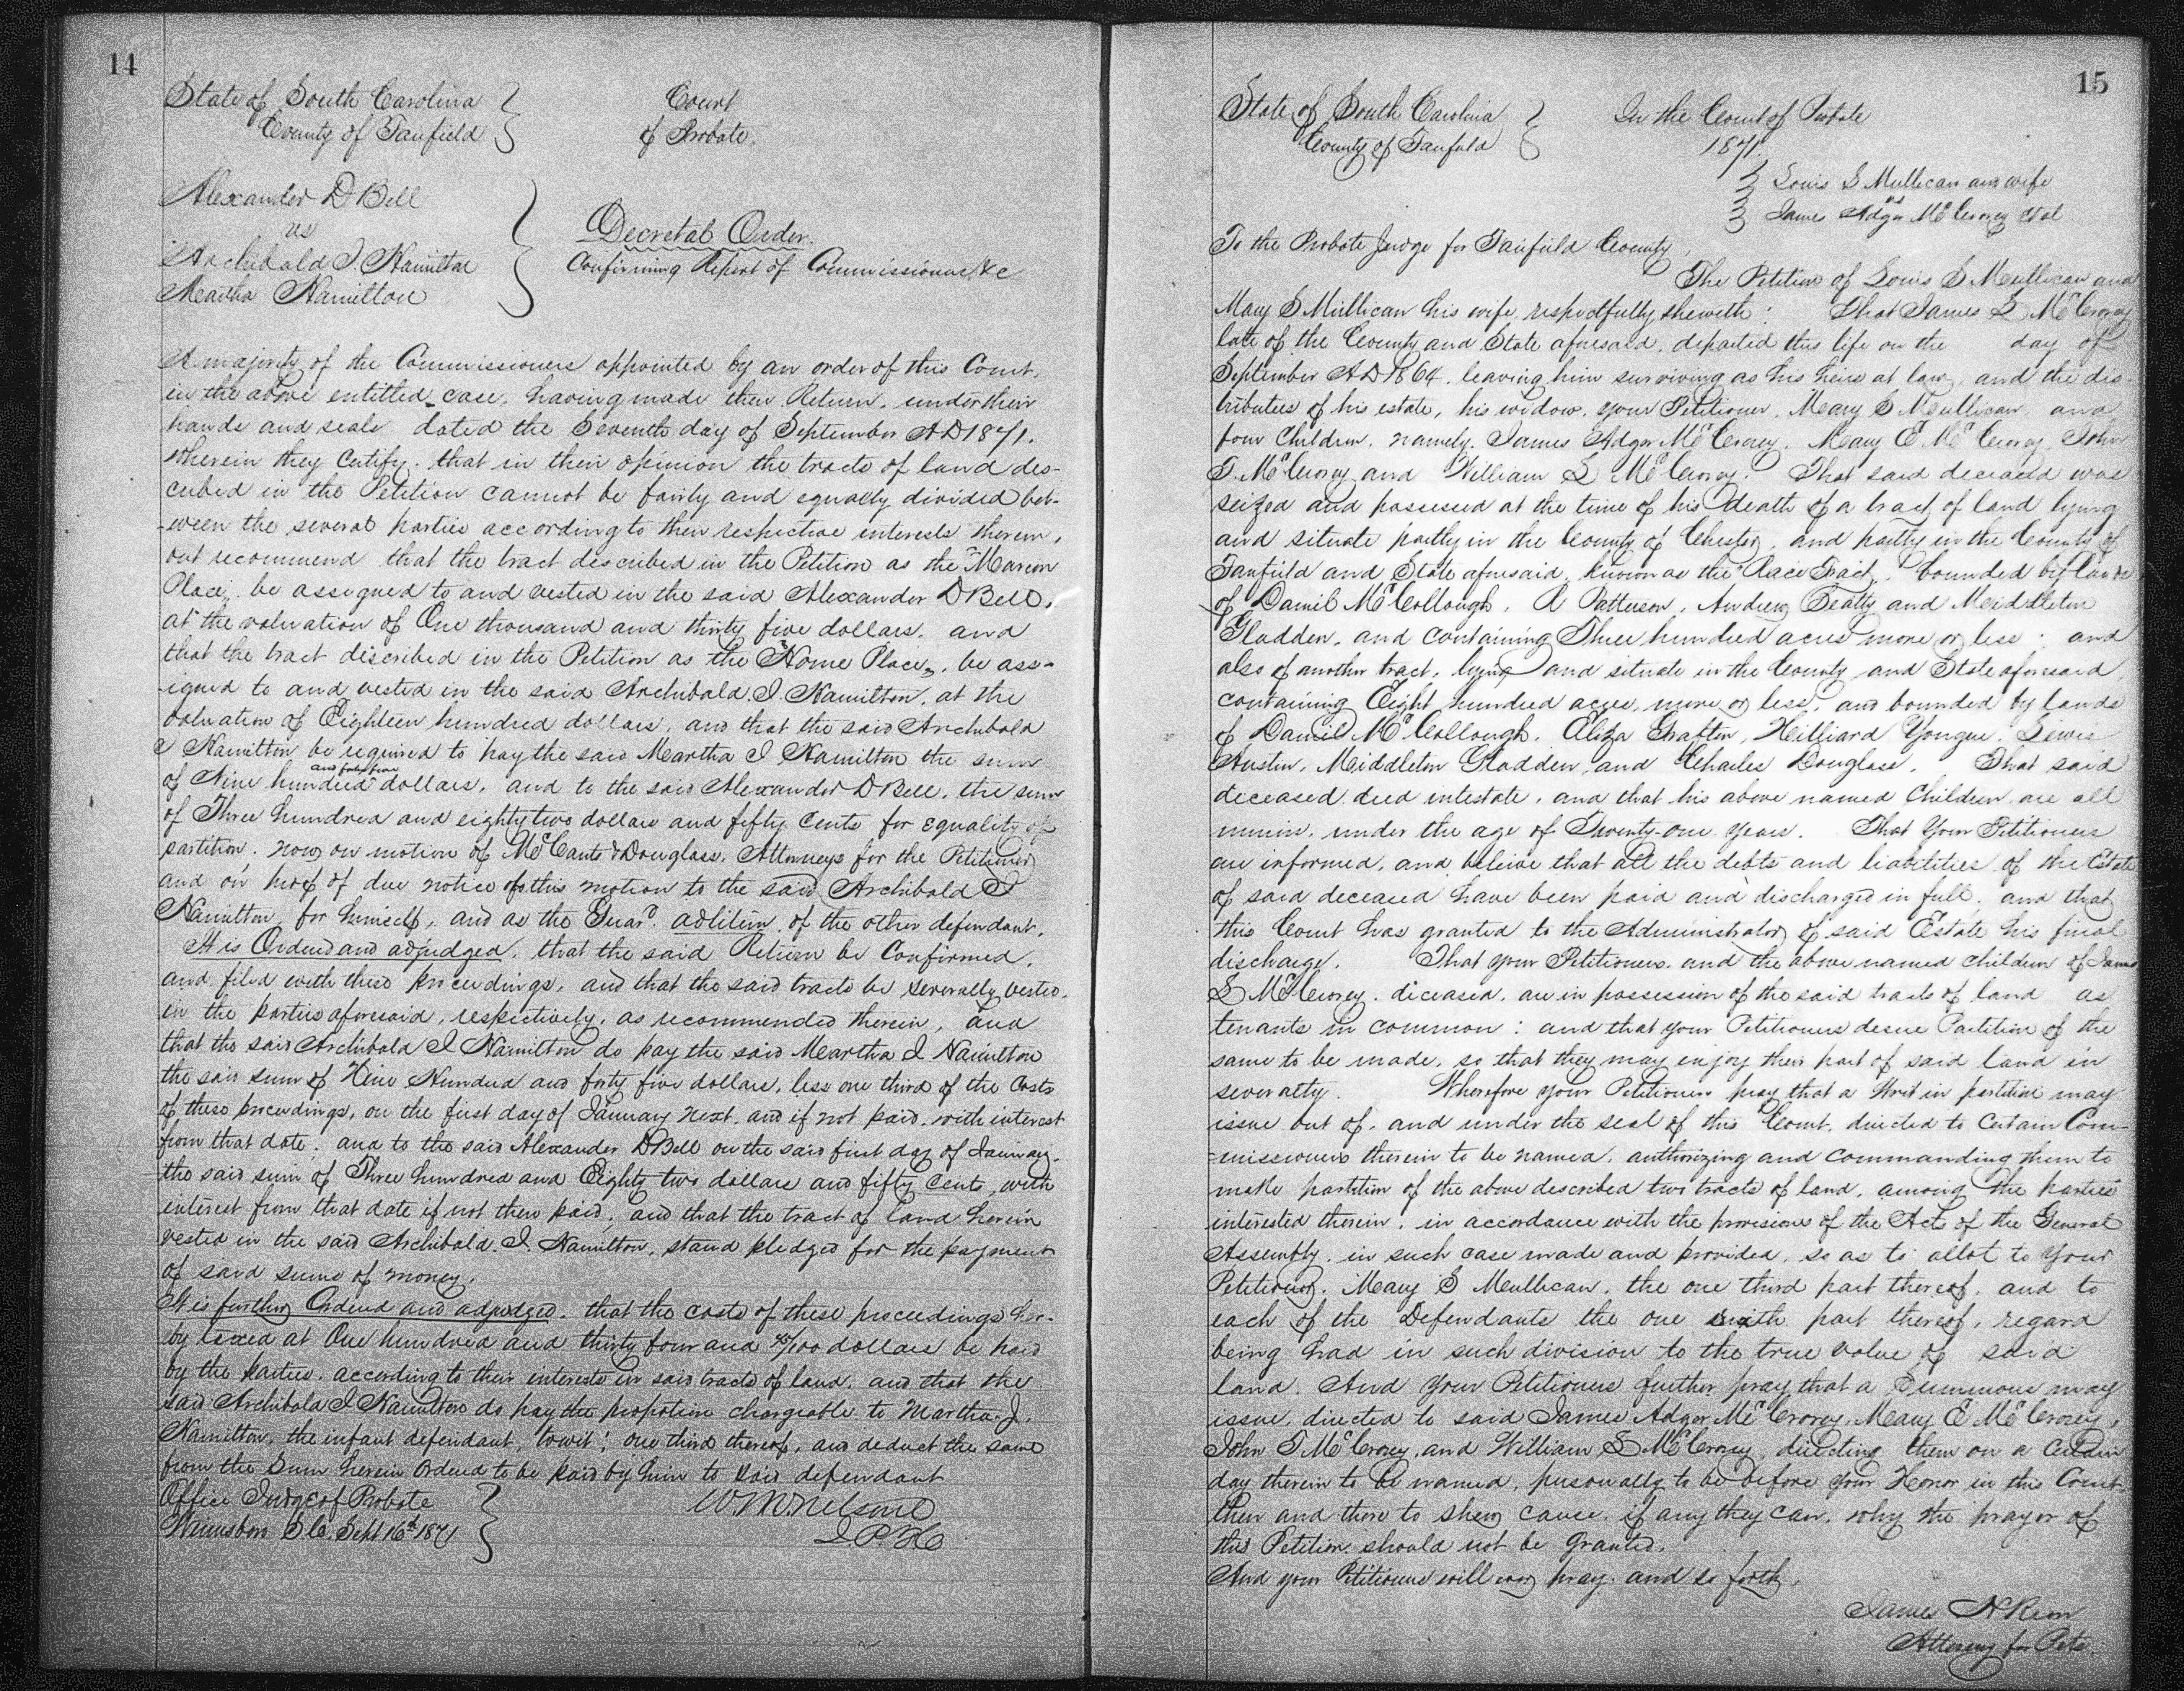 14
State of South Carolina
County of Fairfield
Court
of Probate.
Alexander D Bell
vs
Archibald J. Hamilton
Martha Hamilton
Decretal Order.
Confirming Report of Commissioners &c
A majority of the Commissioners appointed by an order of this Court,
in the above entitled case, having made their Return, under their
hands and seals dated the Seventh day of September AD 1871.
wherein they certify, that in their opinion the tracts of land des-
cribed in the Petition cannot be fairly and equally divided bet-
-ween the several parties according to their respective interests therein,
but recommend that the tract described in the Petition as the "Marion
Place", be assigned to and vested in the said Alexander D Bell,
at the valuation of One thousand and thirty five dollars, and
that the tract described in the Petition as the "Home Place", be ass-
-igned to and vested in the said Archibald J. Hamilton, at the
valuation of Eighteen hundred dollars, and that the said Archibald
J Hamilton be required to pay the said Martha J Hamilton the sum
of Nine hundred and forty five dollars, and to the said Alexander D Bell, the sum
of Three hundred and eighty two dollars and fifty cents for equality of
partition. now on motion of McCants & Douglass, Attorneys for the Petitioner
and on proof of due notice of this motion to the said Archibald J
Hamilton, for himself, and as the Guard. ad litem of the other defendant.
It is Ordered and adjudged, that the said Return be Confirmed,
and filed with these proceedings, and that the said tracts be severally vested,
in the parties aforesaid, respectively, as recommended therein, and
that the said Archibald J Hamilton do pay the said Martha J Hamilton
the said sum of Nine Hundred and forty five dollars, less one third of the Costs
of these proceedings, on the first day of January next, and if not paid, with interest
from that date; and to the said Alexander D Bell on the said first day of January,
the said sum of Three hundred and Eighty two dollars and fifty Cents, with
interest from that date if not then paid, and that the tract of land herein
vested in the said Archibald J. Hamilton, stand pledged for the payment
of said sums of money.
It is further Ordered and adjudged, that the costs of these proceedings her-
by taxed at One hundred and thirty four and /100 dollars be paid
by the parties, according to their interests in said tracts of land, and that the
said Archibald J Hamilton do pay the proportion chargeable to Martha J.
Hamilton, the infant defendant, towit: one third thereof, and deduct the same
from the Sum herein Ordered to be paid by him to said defendant
Office Judge of Probate
Winnsboro S Co. Sept 16th 1871
W M Nelson
J. P. F. C
15
State of South Carolina
County of Fairfield
In the Court of Probate
1871.
Louis S Mullican and wife
vs
James Adger McCrorey et al
To the Probate Judge for Fairfield County,
The Petition of Louis S Mullican and
Mary S Mullican his wife, respectfully sheweth: That James S McCrorey
late of the County and State aforesaid, departed this life on the day of
September AD 1864, leaving him surviving as his heirs at law, and the dis-
tributees of his estate, his widow, your Petitioner, Mary S Mullican, and
four Children, namely, James Adger McCrorey, Mary E McCrorey, John
T. McCrorey and William S McCrorey. That said deceased was
seized and possessed at the time of his death of a tract of land lying
and situate partly in the County of Chester, and partly in the County of
Fairfield and State aforesaid, known as the "Race Tract," bounded by lands
of Daniel McCollough, R Patterson, Andrew Featty and Middleton
Gladden, and containing Three hundred acres more or less; and
also of another tract, lying and situate in the County and State aforesaid,
containing Eight hundred acres, more or less, and bounded by lands
of Daniel McCollough, Eliza Grafton, Hilliard Yongue, Lewis
Austin, Middleton Gladden, and Charles Douglass. That said
deceased died intestate, and that his above named Children are all
minors, under the age of Twenty-one years. That Your Petitioners
are informed, and beleive that all the debts and liabilities of the Estate
of said deceased have been paid and discharged in full, and that
this Court has granted to the Administrator of said Estate his final
discharge. That your Petitioners, and the above named children of James
S McCrorey, deceased, are in possession of the said tracts of land as
tenants in common: and that your Petitioners desire Partition of the
same to be made, so that they may enjoy their part of said land in
severalty. Wherefore your Petitioners pray that a Writ in partition may
issue out of, and under the seal of this Court, directed to certain Com-
-missioners therein to be named, authorizing and commanding them to
make partition of the above described two tracts of land, among the parties
interested therein, in accordance with the provisions of the Acts of the General
Assembly, in such case made and provided, so as to allot to Your
Petitioner, Mary S Mullican, the one third part thereof, and to
each of the Defendants the one sixth part thereof, regard
being had in such division to the true value of said
land. And your Petitioners further pray that a Summons may
issue, directed to said James Adger McCrorey, Mary E McCrorey,
John T McCrorey, and William S McCrorey, directing them on a certain
day therein to be named, personally to be before your Honor in this Court,
then and there to shew cause, if any they can, why the prayer of
this Petition should not be granted.
And your Petitioners will ever pray, and so forth,
James H Rion
Attorney for Pets.